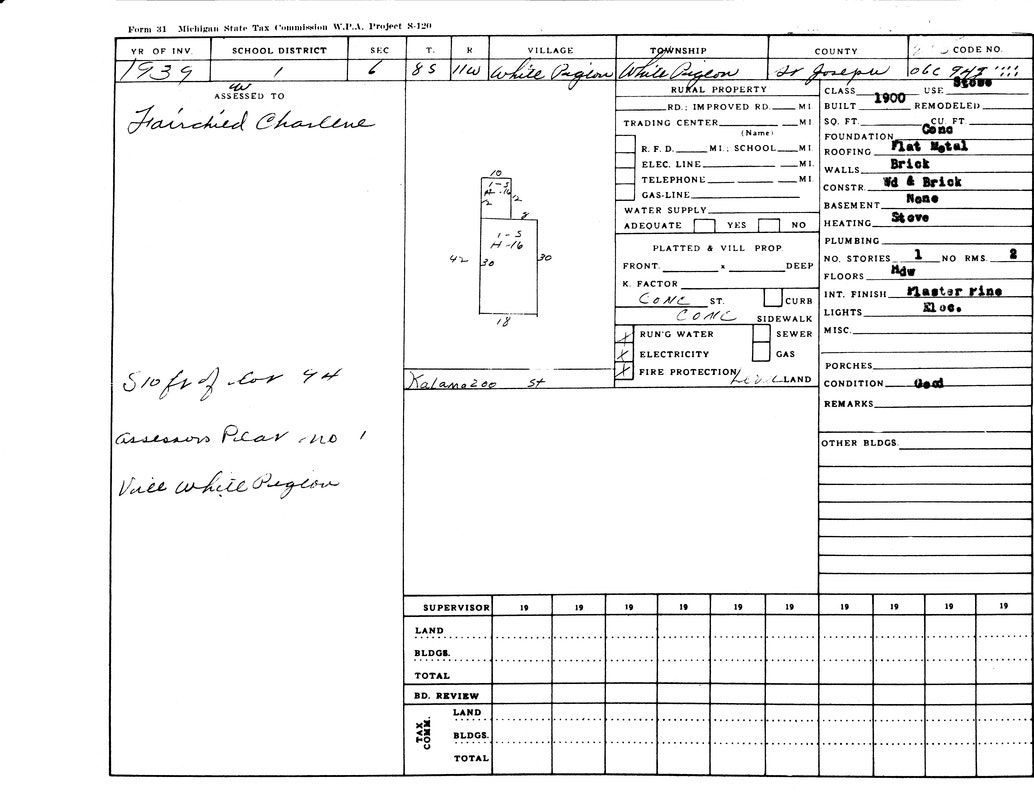 Form 31 Michigan State Tax Commission W.P.A. Project S-120
YR OF INV. SCHOOL DISTRICT SEC T. R VILLAGE TOWNSHIP COUNTY CODE NO.
1939 1 6 8S 11W White Pigeon White Pigeon St Joseph 06C
W
ASSESSED TO
Fairchied Charlene
S10 ft of Lot 94
Assessors Plat no 1
Vill White Pigeon
10
1-S
H-16
12 12
8
1-S
H-16
42 30 30
18
Kalamazoo St
RURAL PROPERTY
RD.; IMPROVED RD. MI
TRADING CENTER MI
(Name)
R. F. D. MI.; SCHOOL MI.
ELEC. LINE MI.
TELEPHONE MI.
GAS-LINE
WATER SUPPLY
ADEQUATE YES NO
PLATTED & VILL PROP.
FRONT. x DEEP
K. FACTOR
CONC ST. CURB
CONC SIDEWALK
X RUN'G WATER SEWER
X ELECTRICITY GAS
X FIRE PROTECTION Level LAND
CLASS USE Store
BUILT 1900 REMODELED
SQ. FT. CU. FT.
FOUNDATION Conc
ROOFING Flat Metal
WALLS Brick
CONSTR. Wd & Brick
BASEMENT None
HEATING Stove
PLUMBING
NO. STORIES 1 NO RMS. 2
FLOORS Hdw
INT. FINISH Plaster Pine
LIGHTS Elec.
MISC.
PORCHES
CONDITION Good
REMARKS
OTHER BLDGS.
SUPERVISOR 19 19 19 19 19 19 19 19 19 19
LAND
BLDGS.
TOTAL
BD. REVIEW
TAX COMM.
LAND
BLDGS.
TOTAL